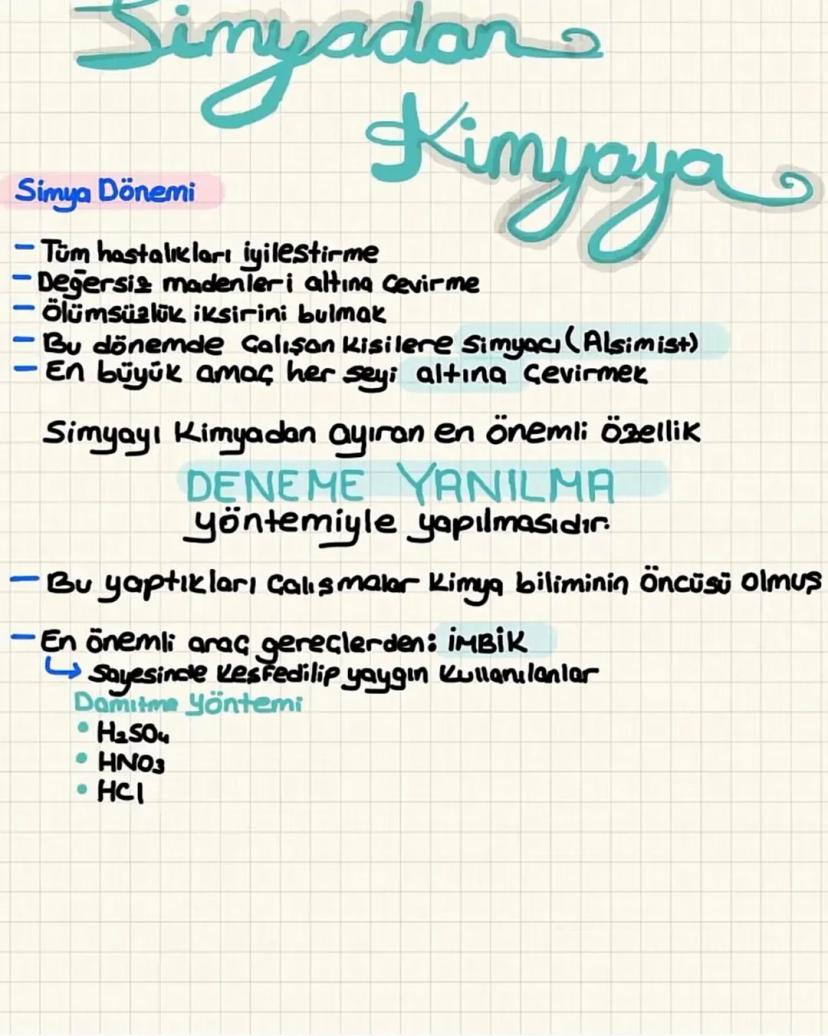 Simyadan
Kimyaya
Simya Dönemi
- Tüm hastalıkları iyileştirme
- Değersiz madenleri altına çevirme
- Ölümsüzlük iksirini bulmak
- Bu dönemde çalışan kişilere simyacı (Alşimist)
- En büyük amaç her şeyi altına çevirmek
Simyayı Kimyadan ayıran en önemli özellik
DENEME YANILMA
yöntemiyle yapılmasıdır.
- Bu yaptıkları çalışmalar kimya biliminin öncüsü olmuş
- En önemli araç gereçlerden: İMBİK
↳ Sayesinde keşfedilip yaygın kullanılanlar
Damıtma yöntemi
• H₂SO₄
• HNO₃
• HCl